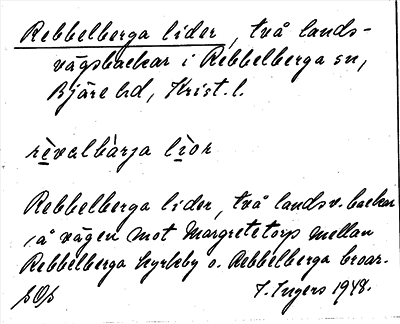 Rebbelberga lider, två lands-
vägsbackar i Rebbelberga sn,
Bjäre hd, Krist. l.
rèvalbàrja lìor
Rebbelberga lider, två landsv. backar
å vägen mot Margretetorp mellan
Rebbelberga kyrkby o. Rebbelberga broar.
I. Ingers 1948.